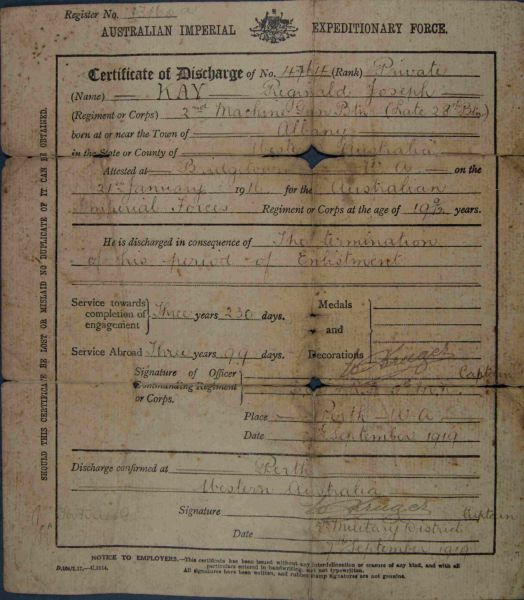 Register No.
AUSTRALIAN IMPERIAL EXPEDITIONARY FORCE.
Certificate of Discharge of No. (Rank) Private
(Name) KAY Reginald Joseph
(Regiment or Corps) 2nd Machine Gun Btn (Late 28th Btn)
born at or near the Town of Albany
in the State or County of Western Australia
Attested at W. A. on the
21st January 1916 for the Australian
Imperial Forces Regiment or Corps at the age of 19 9/12 years.
He is discharged in consequence of The termination
of his period of Enlistment
Service towards completion of engagement } Three years 230 days.
Medals
and
Decorations
Service Abroad Three years 99 days.
Signature of Officer Commanding Regiment or Corps. Captain
Place Perth W.A
Date September 1919
Discharge confirmed at Perth
Western Australia
Signature Captain
Military District
Date September 1919
NOTICE TO EMPLOYERS.—This certificate has been issued without any interlineation or erasure of any kind, and with all
particulars entered in handwriting, and not typewritten.
All signatures here been written, and rubber stamp signatures are not genuine.
SHOULD THIS CERTIFICATE BE LOST OR MISLAID NO DUPLICATE OF IT CAN BE OBTAINED.